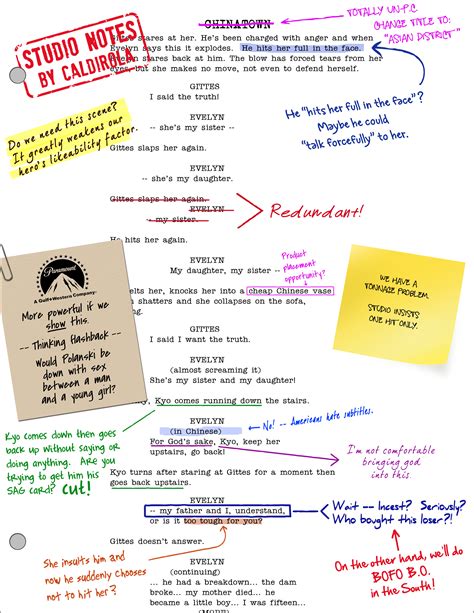 CHINATOWN
TOTALLY UN-P.C.
CHANGE TITLE TO:
"ASIAN DISTRICT"
STUDIO NOTES
BY CALDIROLA
Gittes stares at her. He's been charged with anger and when
Evelyn says this it explodes. He hits her full in the face.
Evelyn stares back at him. The blow has forced tears from her
eyes, but she makes no move, not even to defend herself.
GITTES
I said the truth!
EVELYN
-- she's my sister --
Gittes slaps her again.
EVELYN
-- she's my daughter.
Gittes slaps her again.
EVELYN
-- my sister.
He hits her again.
EVELYN
My daughter, my sister --
belts her, knocks her into a cheap Chinese vase
shatters and she collapses on the sofa,
GITTES
I said I want the truth.
EVELYN
(almost screaming it)
She's my sister and my daughter!
Kyo comes running down the stairs.
EVELYN
(in Chinese)
For God's sake, Kyo, keep her
upstairs, go back!
Kyo turns after staring at Gittes for a moment then
goes back upstairs.
EVELYN
-- my father and I, understand,
or is it too tough for you?
Gittes doesn't answer.
EVELYN
(continuing)
... he had a breakdown... the dam
broke... my mother died... he
became a little boy... I was fifteen
Do we need this scene?
It greatly weakens our
hero's likeability factor.
He "hits her full in the face"?
Maybe he could
"talk forcefully" to her.
Redundant!
Product
placement
opportunity?
Paramount
A Gulf+Western Company
More powerful if we
show this.
-- Thinking flashback --
Would Polanski be
down with sex
between a man
and a young girl?
WE HAVE A
TONNAGE PROBLEM.
STUDIO INSISTS
ONE HIT ONLY.
No! -- Americans hate subtitles.
Kyo comes down then goes
back up without saying or
doing anything. Are you
trying to get him his
SAG card? CUT!
I'm not comfortable
bringing god
into this.
Wait -- Incest? Seriously?
Who bought this loser?!
She insults him and
now he suddenly chooses
not to hit her?
On the other hand, we'll do
BOFO B.O.
in the South!